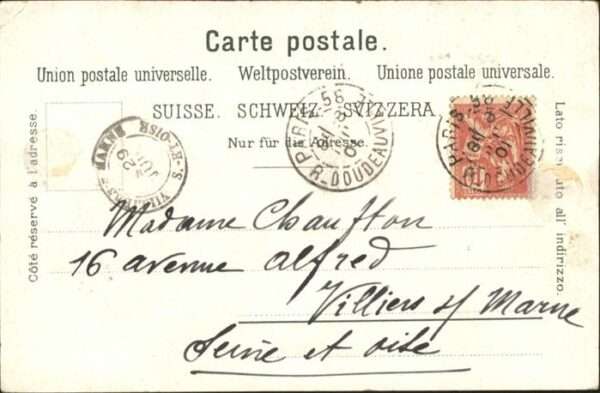 Carte postale.
Union postale universelle. Weltpostverein. Unione postale universale.
SUISSE. SCHWEIZ. SVIZZERA.
Nur für die Adresse.
Côté réservé à l'adresse.
Lato riservato all' indirizzo.
PARIS 58
R. DOUDEAUVILLE
PARIS 58
R. DOUDEAUVILLE
S.-ET-OISE
29
Madame Chauffton
16 avenue Alfred
Villiers s/ Marne
Seine et oise